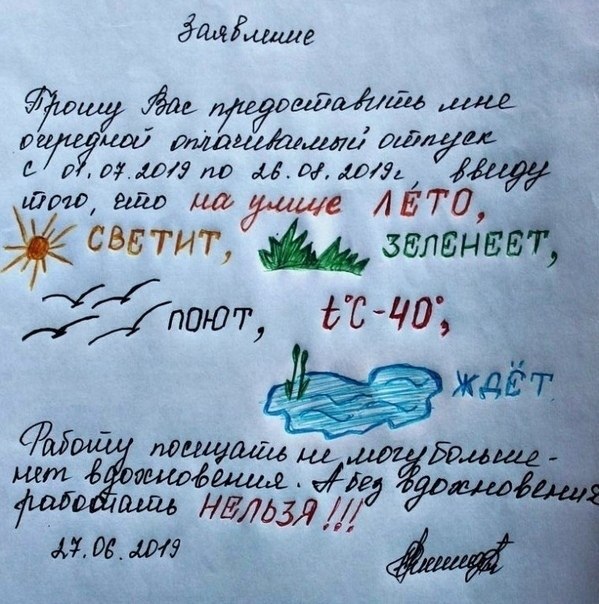 Заявление
Прошу Вас предоставить мне
очередной оплачиваемый отпуск
с 01.07.2019 по 26.08.2019г, ввиду
того, что на улице ЛЕ́ТО,
СВЕТИТ, ЗЕЛЕНЕЕТ,
ПОЮТ, t°C-40°,
ЖДЁТ
Работу посещать не могу больше -
нет вдохновения. А без вдохновения
работать НЕЛЬЗЯ!!!
27.06.2019